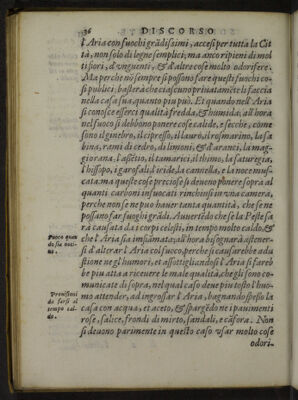 36 DISCORSO
l'Aria con fuochi grādißimi, accesi per tutta la Cit
tà, non solo di legne semplici; ma anco ripieni di mol
ti fiori, d'vnguenti, & d'altre cose molto odorifere.
Ma perche nō sempre si possono fare questi fuochi co-
si publici; basterà che ciascuno priuatamēte li faccia
nella casa sua, quanto piu può. Et quando nell'Aria
si conosce esserci qualità fredda, & humida; all'hora
nel fuoco si debbono ponere cose calide, e secche, come
sono il ginebro, il cipresso, il lauro, il rosmarino, la sa
bina, rami di cedro, di limoni, & d'aranci, la mag-
giorana, l'assētio, il tamarici, il thimo, la satureia,
l'hissopo, i garofali, l'iride, la cannella, e la noce mus-
cata. ma queste cose preciose si deueno ponere sopra al
quanti carboni infuocati rinchiusi in vna camera,
perche non se ne puo hauer tanta quantità, che se ne
possano far fuochi grādi. Auuertēdo che se la Peste sa
rà causata da i corpi celesti, in tempo molto caldo, &
che l'Aria sia infiammata; all'hora bisognarà astener-
si d'alterar l'Aria col fuoco, perche si causarebbe adu
stione ne gl'humori, et assottigliandosi l'Aria si fareb
be piu atta a riceuere le male qualità, che gli sono co-
municate di sopra, nel qual caso deue piu tosto l'huo-
mo attender, ad ingrossar l'Aria, bagnando spesso la
casa con acqua, et aceto, & spargēdo ne i pauimenti
rose, salice, frondi di mirto, sandali, e cāfora. Non
si deuono parimente in questo caso vsar molto cose
odori-
Fuoco quan
do sia noci-
uo.
Prouisioni
da farsi al
tempo cal-
do.